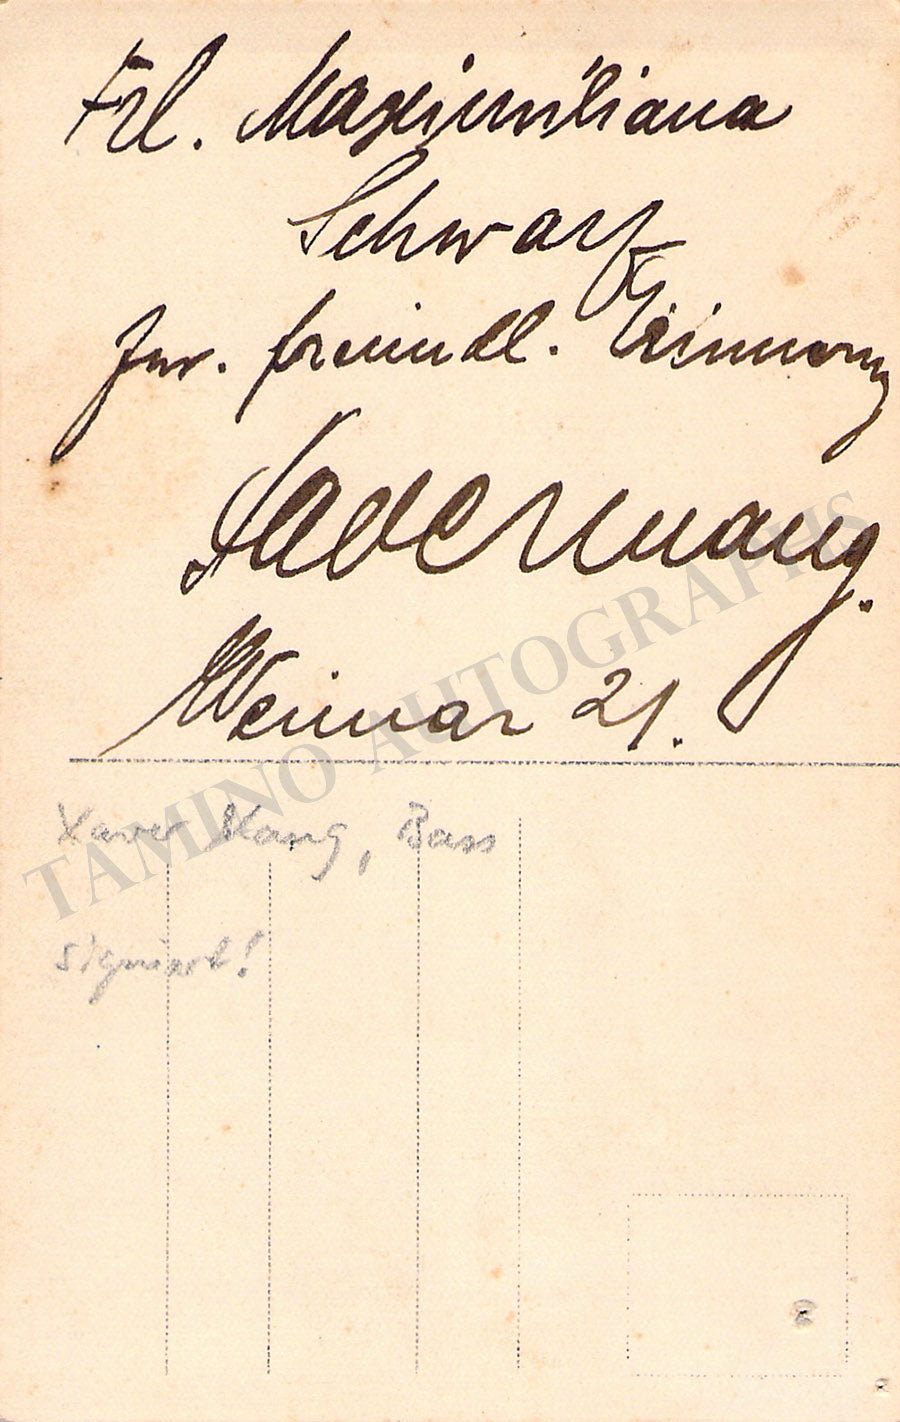 Frl. Maximiliana
Schwarz
zur. freundl. Erinnerung
Weimar 21.
TAMINO AUTOGRAPHS
Xaver Mang, Bass
signiert!